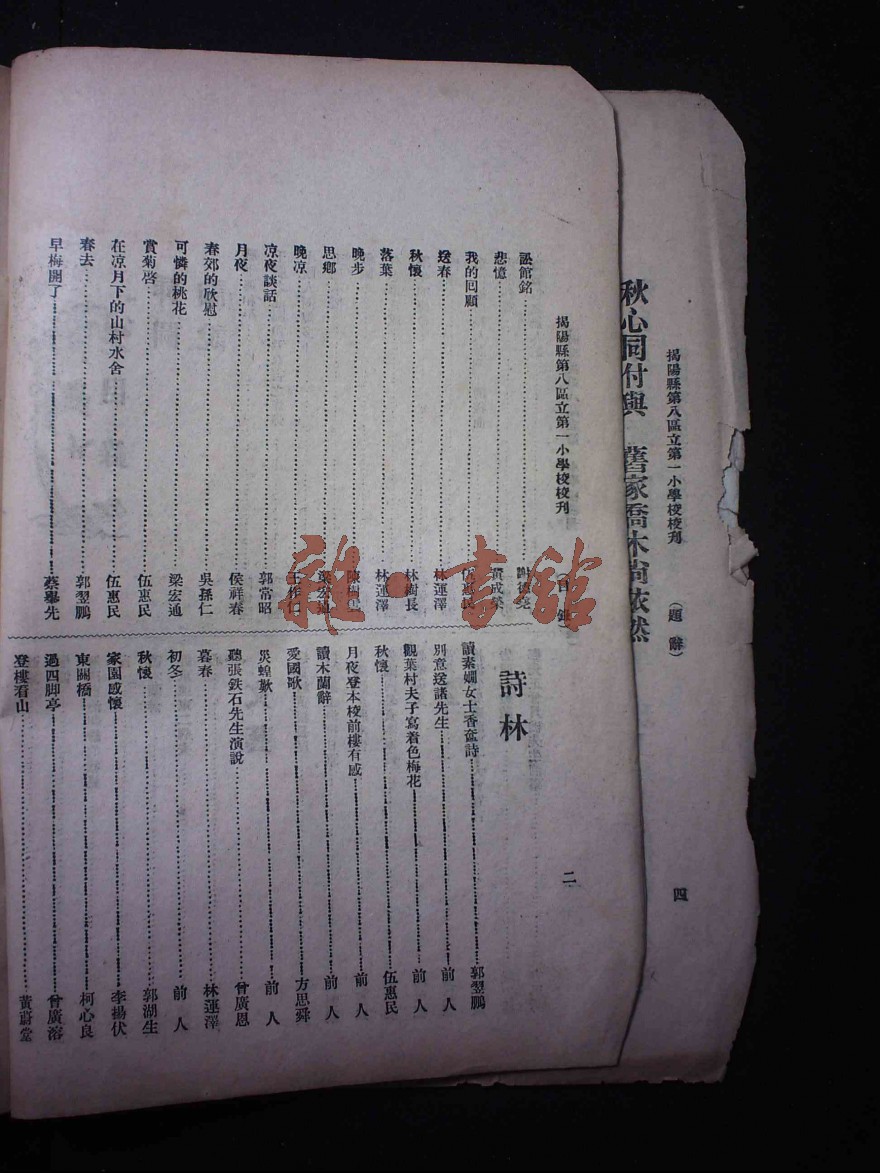 揭陽縣第八區立第一小學校校刊 (題辭) 四
秋心同付與 舊家喬木尚依然
揭陽縣第八區立第一小學校校刊 (目錄) 二
訟館銘 謝德堯
悲憶 黃成榮
我的回顧 伍惠民
送春 林運澤
秋懷 林樹長
落葉 林運澤
晚步
思鄉 梁宏通
晚凉 王作仁
凉夜談話 郭常昭
月夜 侯祥春
春郊的欣慰 吳孫仁
可憐的桃花 梁宏通
賞菊啓 伍惠民
在凉月下的山村水舍 伍惠民
春去 郭翌鵬
早梅開了 蔡舉先
詩林
讀素嫻女士香奩詩 郭翌鵬
別意送諸先生 前人
觀葉村夫子寫着色梅花 前人
秋懷 伍惠民
月夜登本校前樓有感 前人
讀木蘭辭 前人
愛國歌 方思舜
災蝗歎 前人
聽張鉄石先生演說 曾廣恩
暮春 林運澤
初冬 前人
秋懷 郭湖生
家園感懷 李揚伏
東關橋 柯心良
過四脚亭 曾廣溶
登樓看山 黃蔚堂
雜·書館